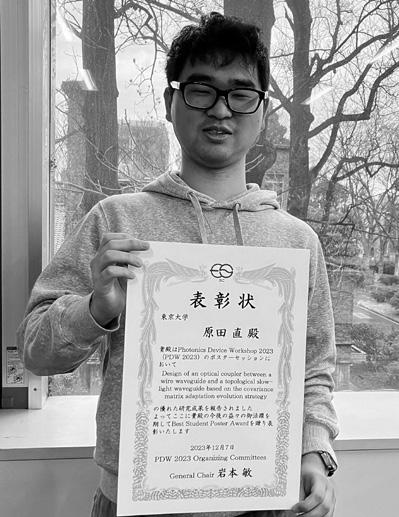 表彰状
東京大学
原田 直 殿
貴殿はPhotonics Device Workshop 2023
(PDW 2023) のポスターセッションに
おいて
Design of an optical coupler between a
wire waveguide and a topological slow-
light waveguide based on the covariance
matrix adaptation evolution strategy
の優れた研究成果を報告されました
よってここに貴殿の今後の益々の御活躍を
期してBest Student Poster Awardを贈り表
彰いたします
2023年12月7日
PDW 2023 Organizing Committees
General Chair 岩本 敏